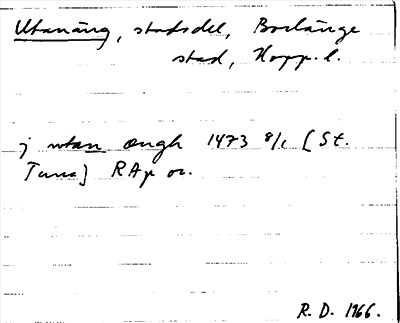 Utanäng, stadsdel, Borlänge
stad, Kopp. l.
j utan ængh 1473 8/1 [St.
Tuna] RAp or.
R. D. 1966.